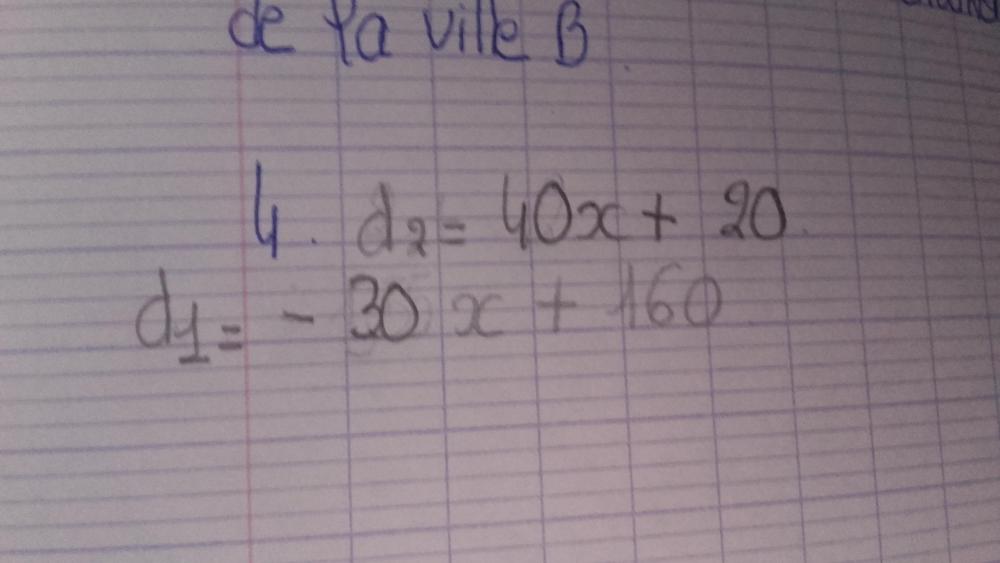 de la ville B
4. d2 = 40x + 20
d1 = - 30x + 160